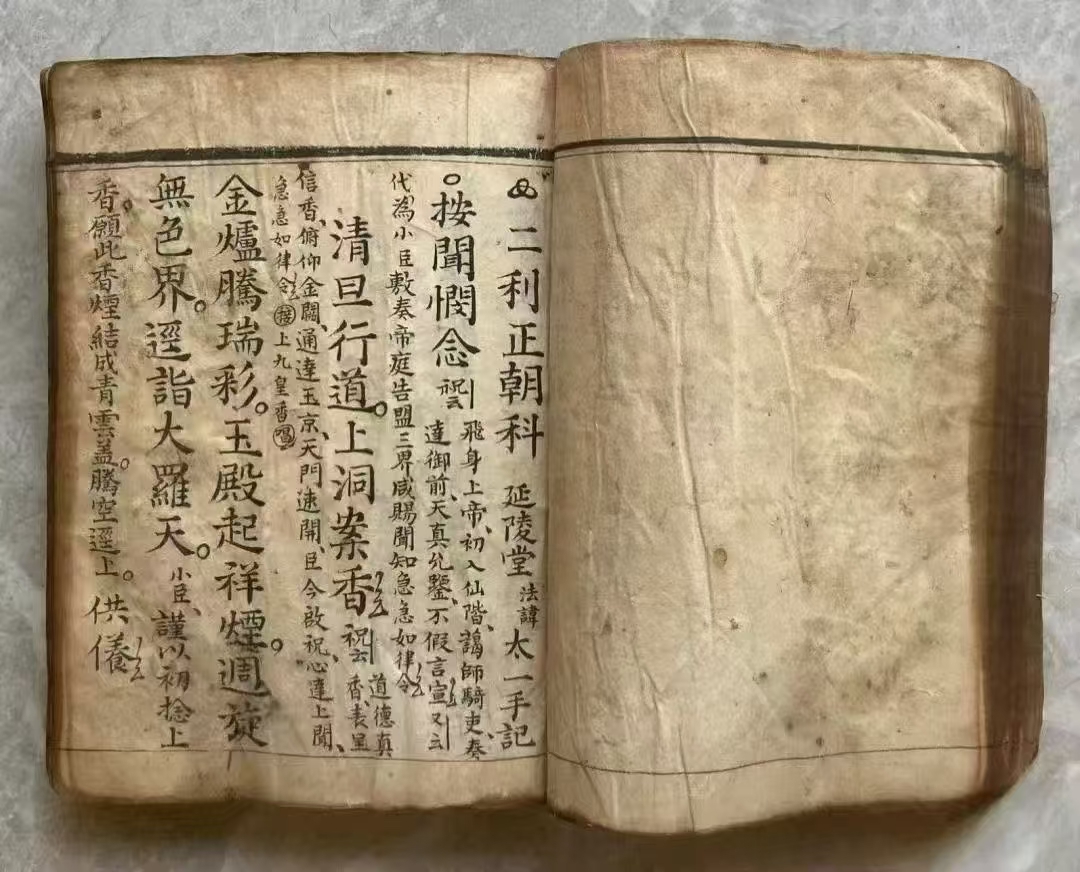 二利正朝科 延陵堂 法諱 太一手記
按聞憫念 祝云 飛身上帝、初入仙階、謁師騎吏、奏
達御前天真允鑒、不假言宣 又云
代為小臣敷奏帝庭告盟三界咸賜聞知急急如律令
清旦行道。上洞案香 祝云 道德真
香、表呈
信香、俯仰金闕、通達玉京、天門速開、臣今啟祝、心達上聞、
急急如律令 接 上九皇香 唱
金爐騰瑞彩。玉殿起祥煙。週旋
無色界。逕詣大羅天。小臣、謹以初捻上
香。願此香煙結成青雲蓋。騰空逕上。供儀